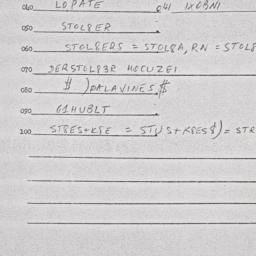 040 LOPATE 041 IXOBNI
050 STOL8ER
060 STOL8ERS = STOL8A, RN = STOL8
070 DERSTOL83R HOCUZEI
080 $ )PALAVINES $
090 G1HUBLT
100 STSES+KSE = STUS+KSES$) = STR